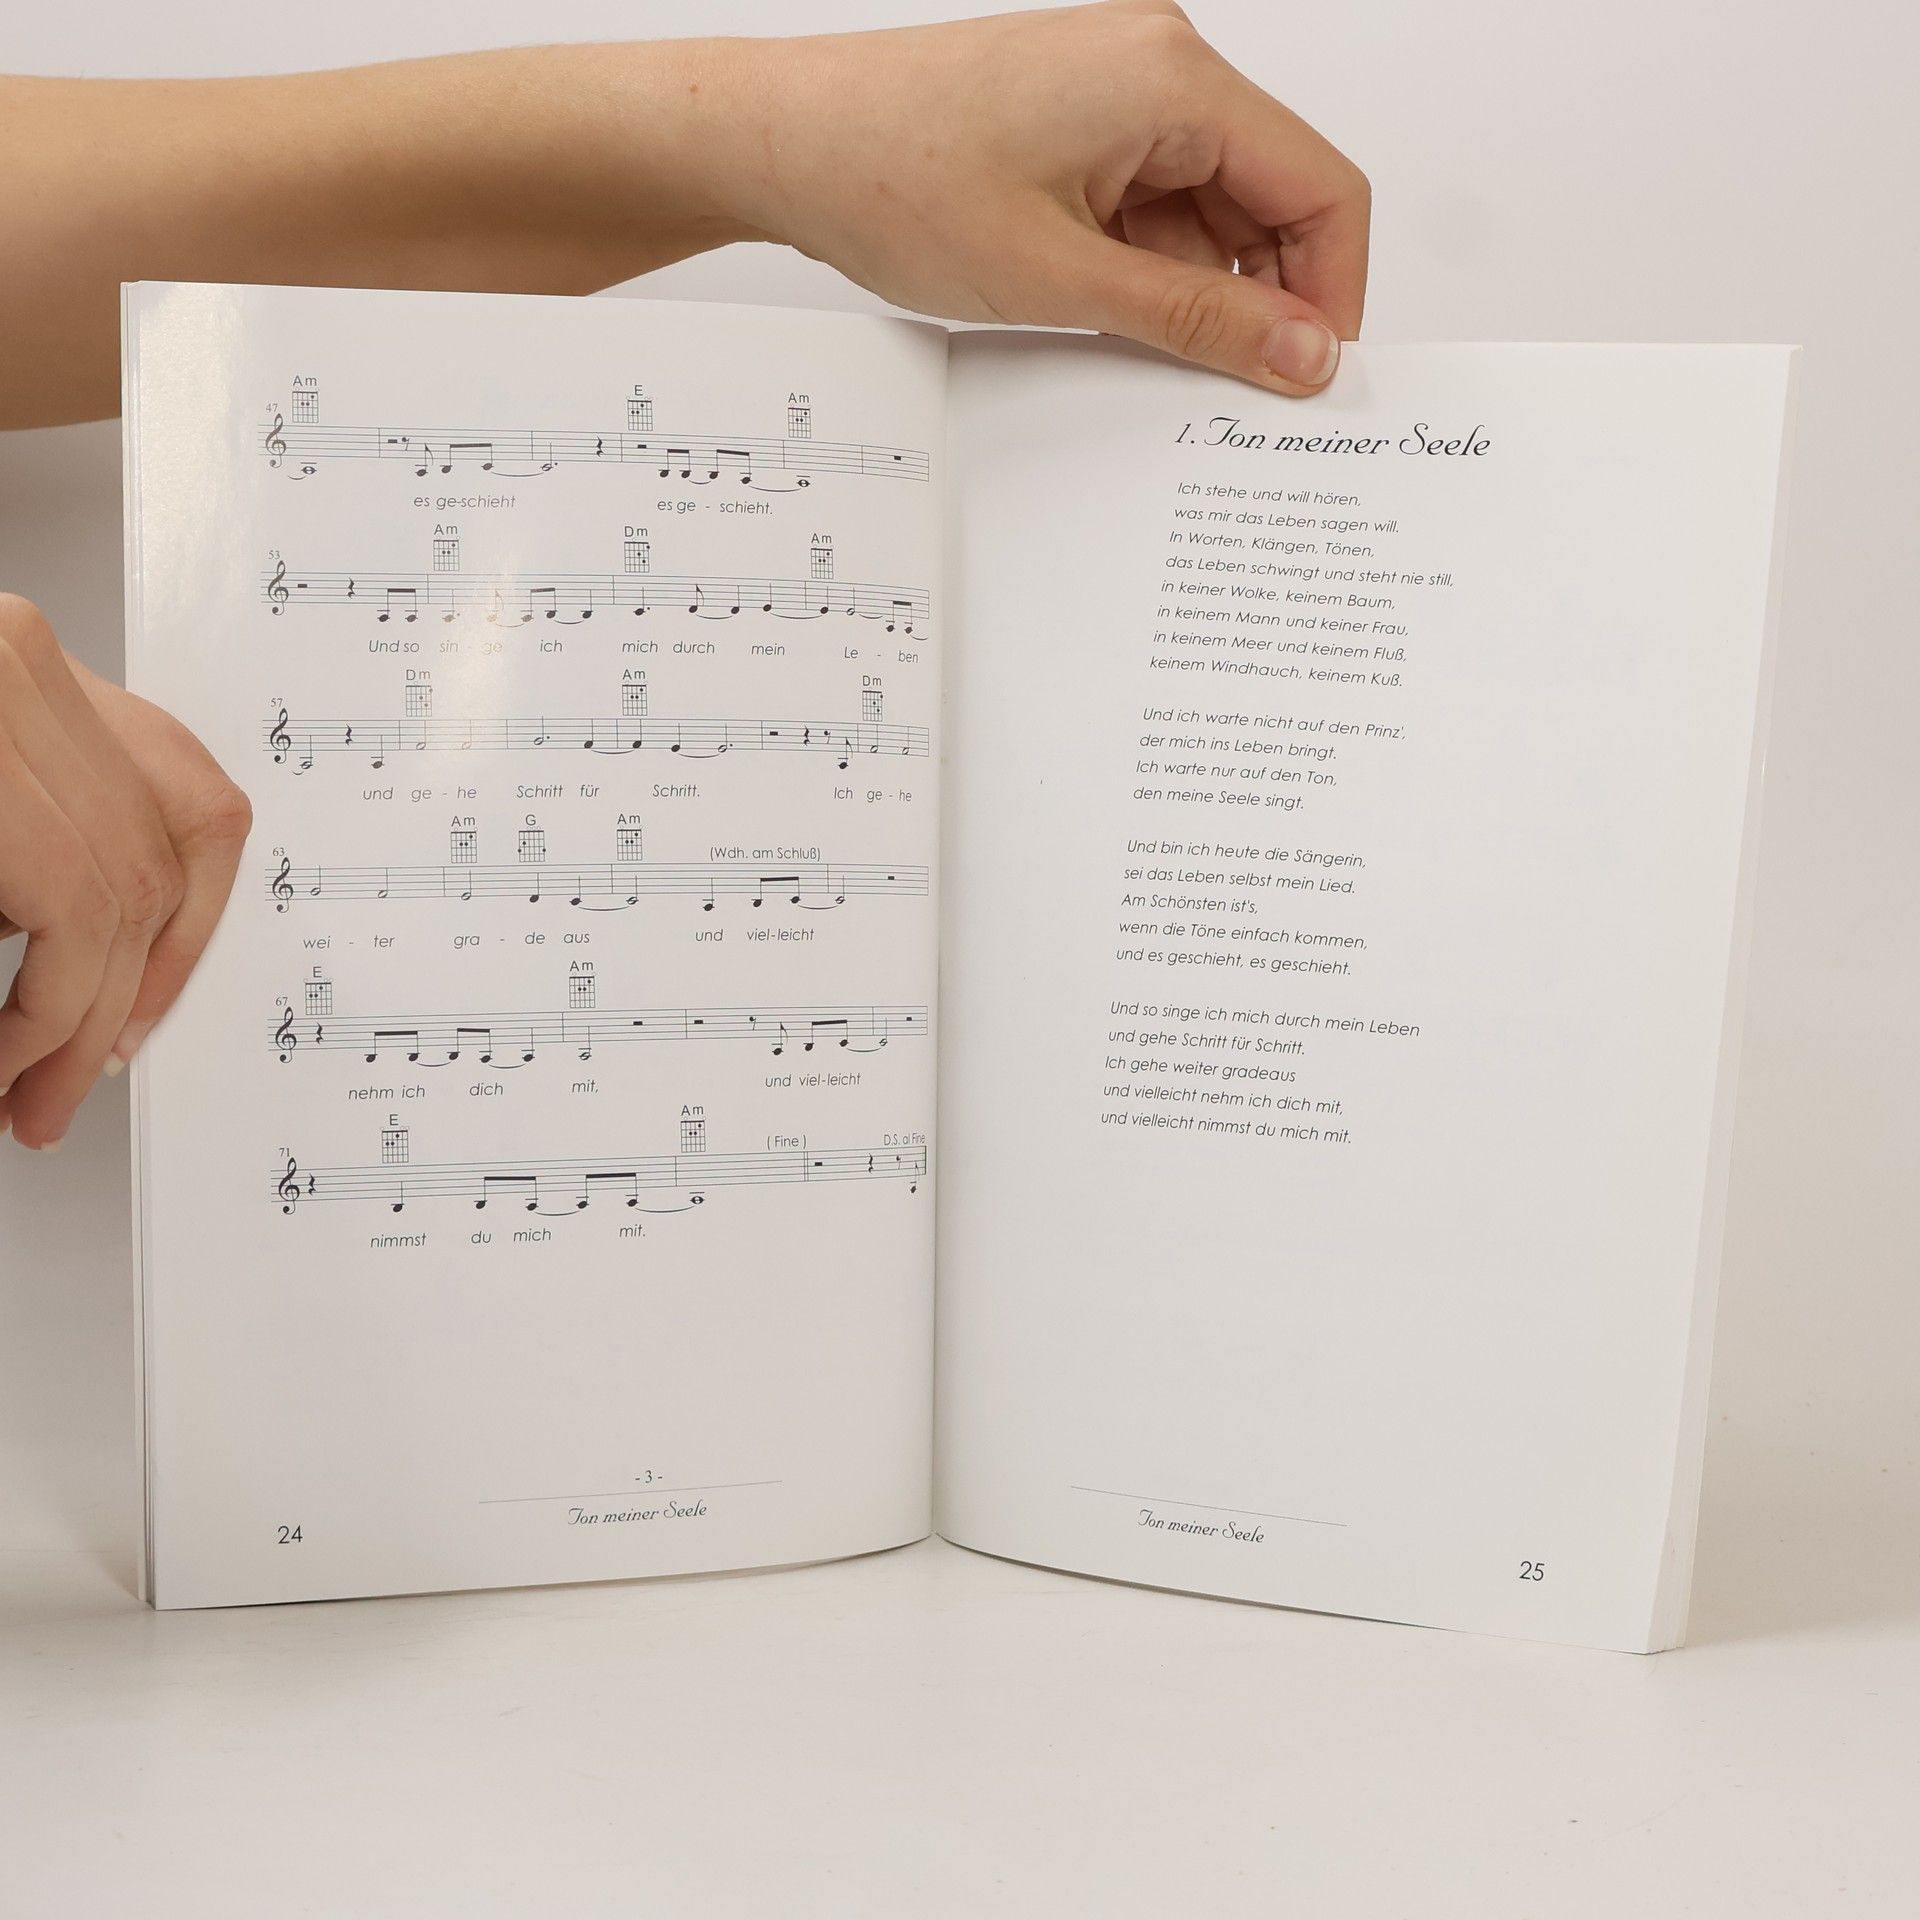 Am E Am
47
es ge-schieht es ge - schieht.
Am Dm Am
53
Und so sin - ge ich mich durch mein Le - ben
Dm Am Dm
57
und ge - he Schritt für Schritt. Ich ge - he
Am G Am
(Wdh. am Schluß)
63
wei - ter gra - de aus und viel-leicht
E Am
67
nehm ich dich mit, und viel-leicht
E Am
( Fine ) D.S. al Fine
71
nimmst du mich mit.
- 3 -
Ton meiner Seele
24
1. Ton meiner Seele
Ich stehe und will hören,
was mir das Leben sagen will.
In Worten, Klängen, Tönen,
das Leben schwingt und steht nie still,
in keiner Wolke, keinem Baum,
in keinem Mann und keiner Frau,
in keinem Meer und keinem Fluß,
keinem Windhauch, keinem Kuß.
Und ich warte nicht auf den Prinz',
der mich ins Leben bringt.
Ich warte nur auf den Ton,
den meine Seele singt.
Und bin ich heute die Sängerin,
sei das Leben selbst mein Lied.
Am Schönsten ist's,
wenn die Töne einfach kommen,
und es geschieht, es geschieht.
Und so singe ich mich durch mein Leben
und gehe Schritt für Schritt.
Ich gehe weiter gradeaus
und vielleicht nehm ich dich mit,
und vielleicht nimmst du mich mit.
Ton meiner Seele
25